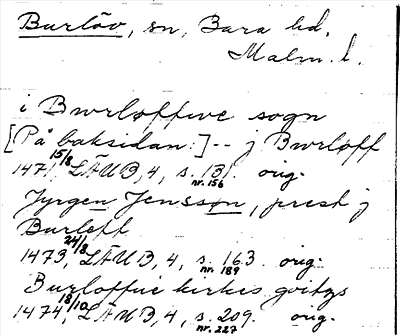 Burlöv, sn, Bara hd,
Malm. l.
i Bwrløffwe sogn
[På baksidan:] -- j Bwrløff
1471 15/8, LÄUB, 4, s. 131. orig.
nr. 156
Jyrgen Jenssøn, prest j
Burløff
1473 24/3, LÄUB, 4, s. 163. orig.
nr. 189
Burløffue kirkis gotzs
1474 18/10, LÄUB, 4, s. 209. orig.
nr. 227